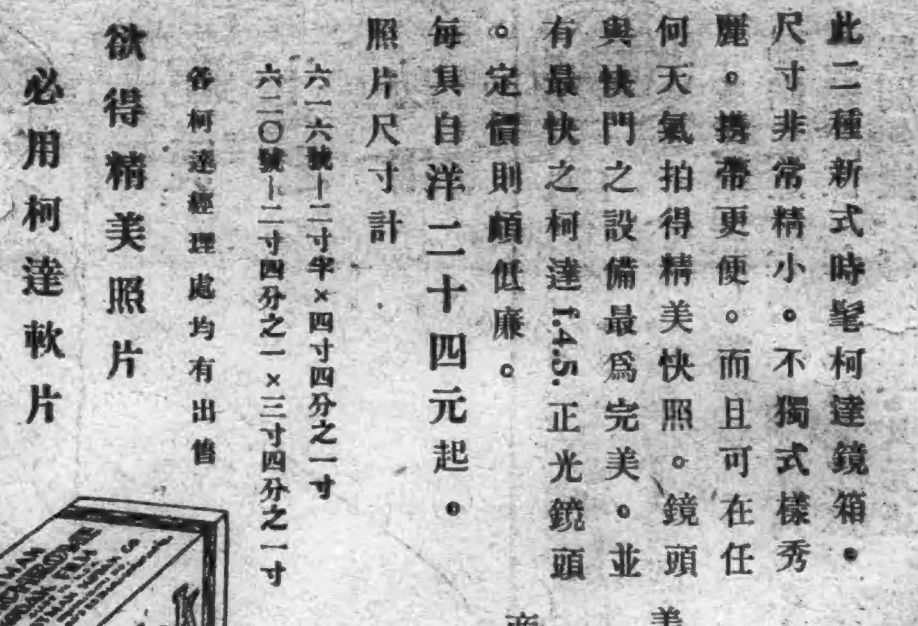 此二種新式時髦柯達鏡箱。
尺寸非常精小。不獨式樣秀
麗。攜帶更便。而且可在任
何天氣拍得精美快照。鏡頭
與快門之設備最爲完美。並
有最快之柯達f.4.5.正光鏡頭
。定價則頗低廉。
每具自洋二十四元起。
照片尺寸計
六一六號—二寸半×四寸四分之一寸
六二〇號—二寸四分之一×三寸四分之一寸
各柯達經理處均有出售
欲得精美照片
必用柯達軟片
美